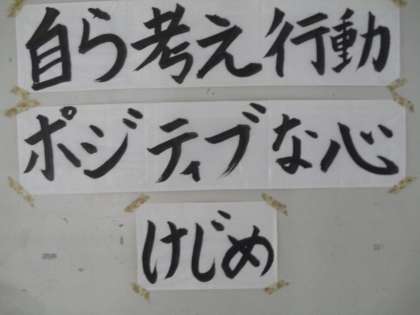 自ら考え行動
ポジティブな心
けじめ